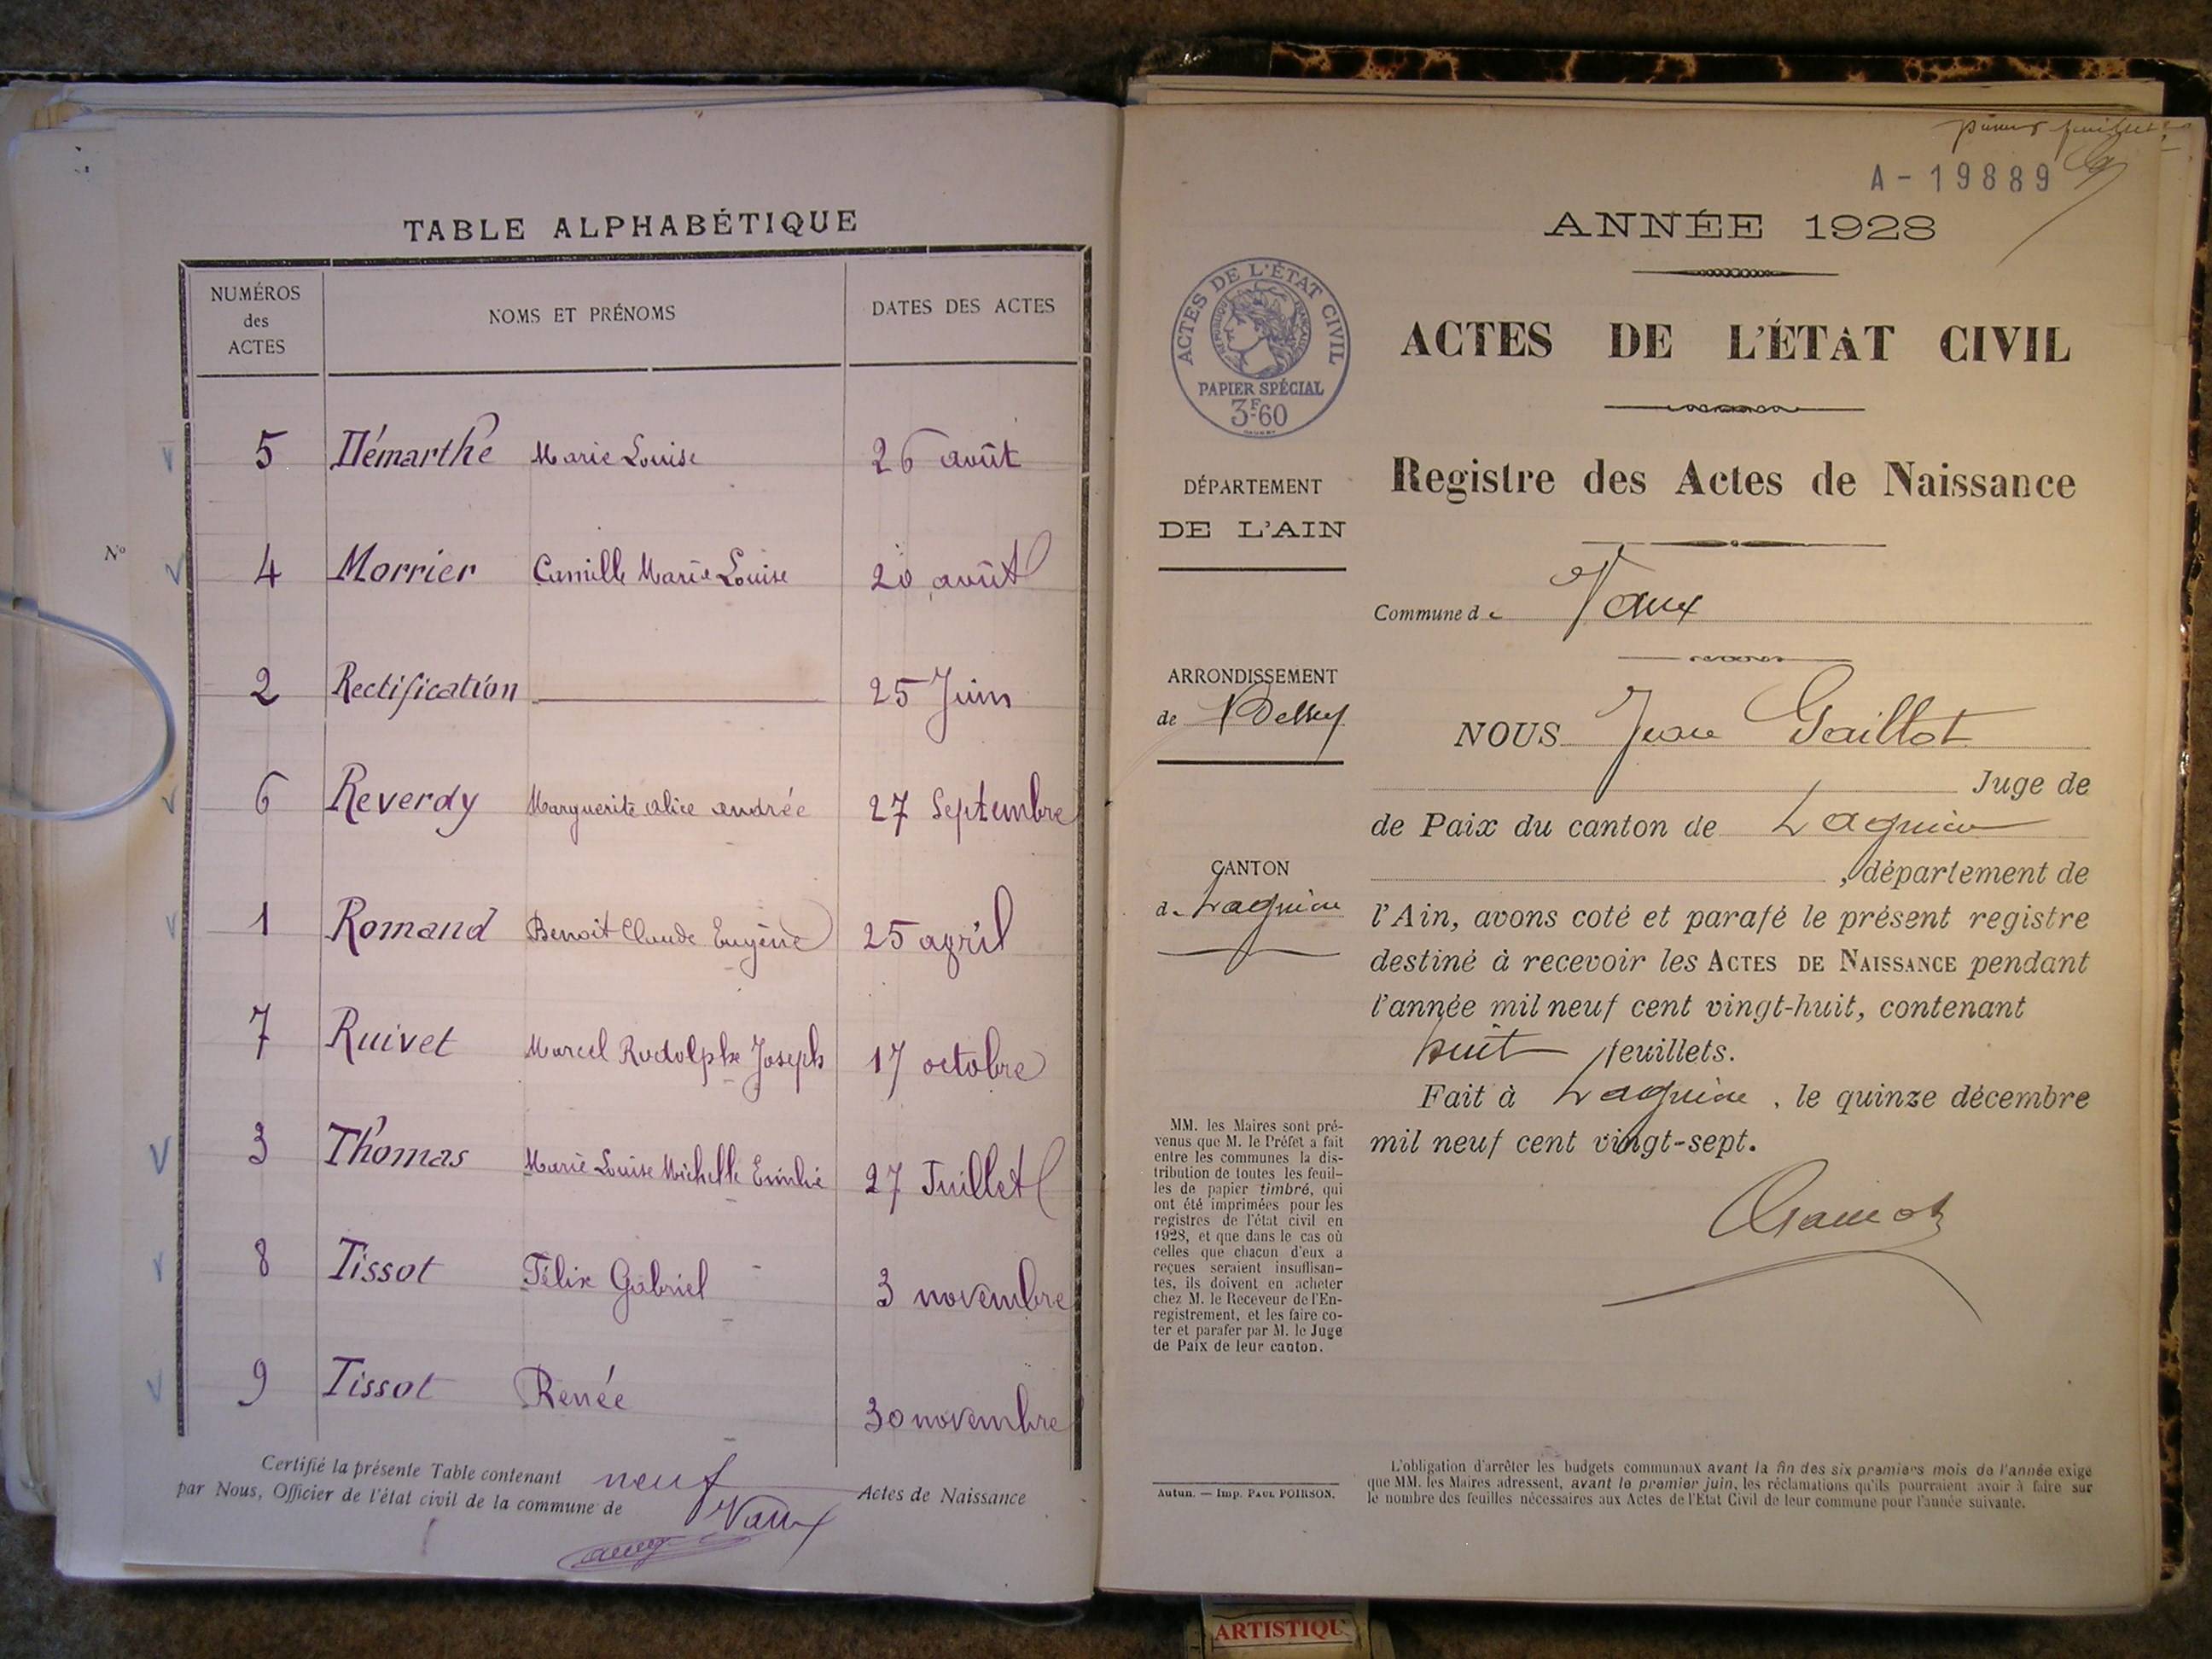 TABLE ALPHABÉTIQUE
NUMÉROS des ACTES
NOMS ET PRÉNOMS
DATES DES ACTES
5 Démarthe Marie Louise 26 août
N°
4 Morrier Camille Marie Louise 20 août
2 Rectification 25 Juin
6 Reverdy Marguerite alice andrée 27 Septembre
1 Romand Benoit Claude Eugène 25 avril
7 Ruivet Marcel Rodolphe Joseph 17 octobre
3 Thomas Marie Louise Michelle Emilie 27 Juillet
8 Tissot Félix Gabriel 3 novembre
9 Tissot Renée 30 novembre
Certifié la présente Table contenant neuf Actes de Naissance
par Nous, Officier de l'état civil de la commune de Vaux
A - 19889
ANNÉE 1928
ACTES DE L'ÉTAT CIVIL
RÉPUBLIQUE FRANÇAISE
PAPIER SPÉCIAL
3F60
ACTES DE L'ÉTAT CIVIL
Registre des Actes de Naissance
DÉPARTEMENT
DE L'AIN
Commune de Vaux
ARRONDISSEMENT
de Belley
CANTON
de Lagnieu
NOUS Jean Gaillot
Juge de
de Paix du canton de Lagnieu
, département de
l'Ain, avons coté et parafé le présent registre
destiné à recevoir les ACTES DE NAISSANCE pendant
l'année mil neuf cent vingt-huit, contenant
huit feuillets.
Fait à Lagnieu, le quinze décembre
mil neuf cent vingt-sept.
MM. les Maires sont pré-
venus que M. le Préfet a fait
entre les communes la dis-
tribution de toutes les feuil-
les de papier timbré, qui
ont été imprimées pour les
registres de l'état civil en
1928, et que dans le cas où
celles que chacun d'eux a
reçues seraient insuffisan-
tes, ils doivent en acheter
chez M. le Receveur de l'En-
registrement, et les faire co-
ter et parafer par M. le Juge
de Paix de leur canton.
Autun. — Imp. PAUL POIRSON.
L'obligation d'arrêter les budgets communaux avant la fin des six premiers mois de l'année exige
que MM. les Maires adressent, avant le premier juin, les réclamations qu'ils pourraient avoir à faire sur
le nombre des feuilles nécessaires aux Actes de l'Etat Civil de leur commune pour l'année suivante.
ARTISTIQU